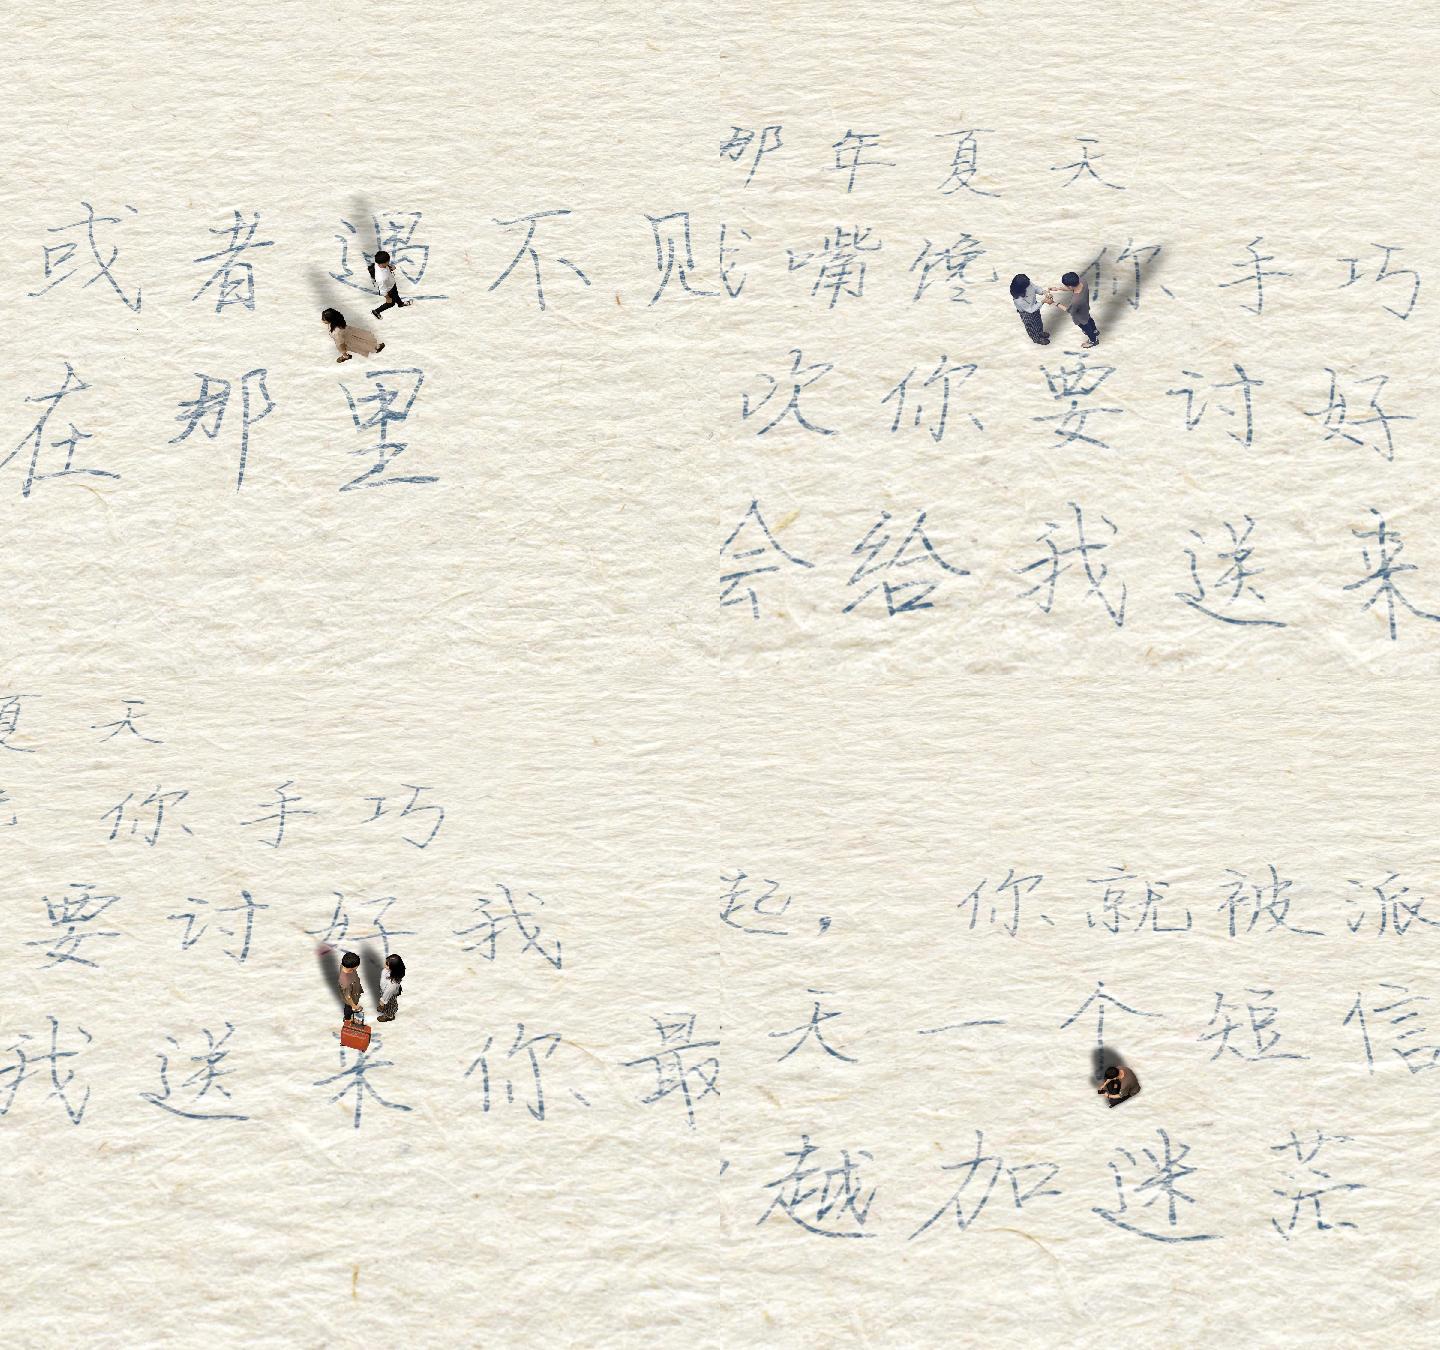 或者遇不见
在那里
那年夏天
嘴馋 你手巧
吹你要讨好
会给我送来
夏天
你手巧
要讨好我
我送来你最
起， 你就被派
天一个短信
越加迷茫